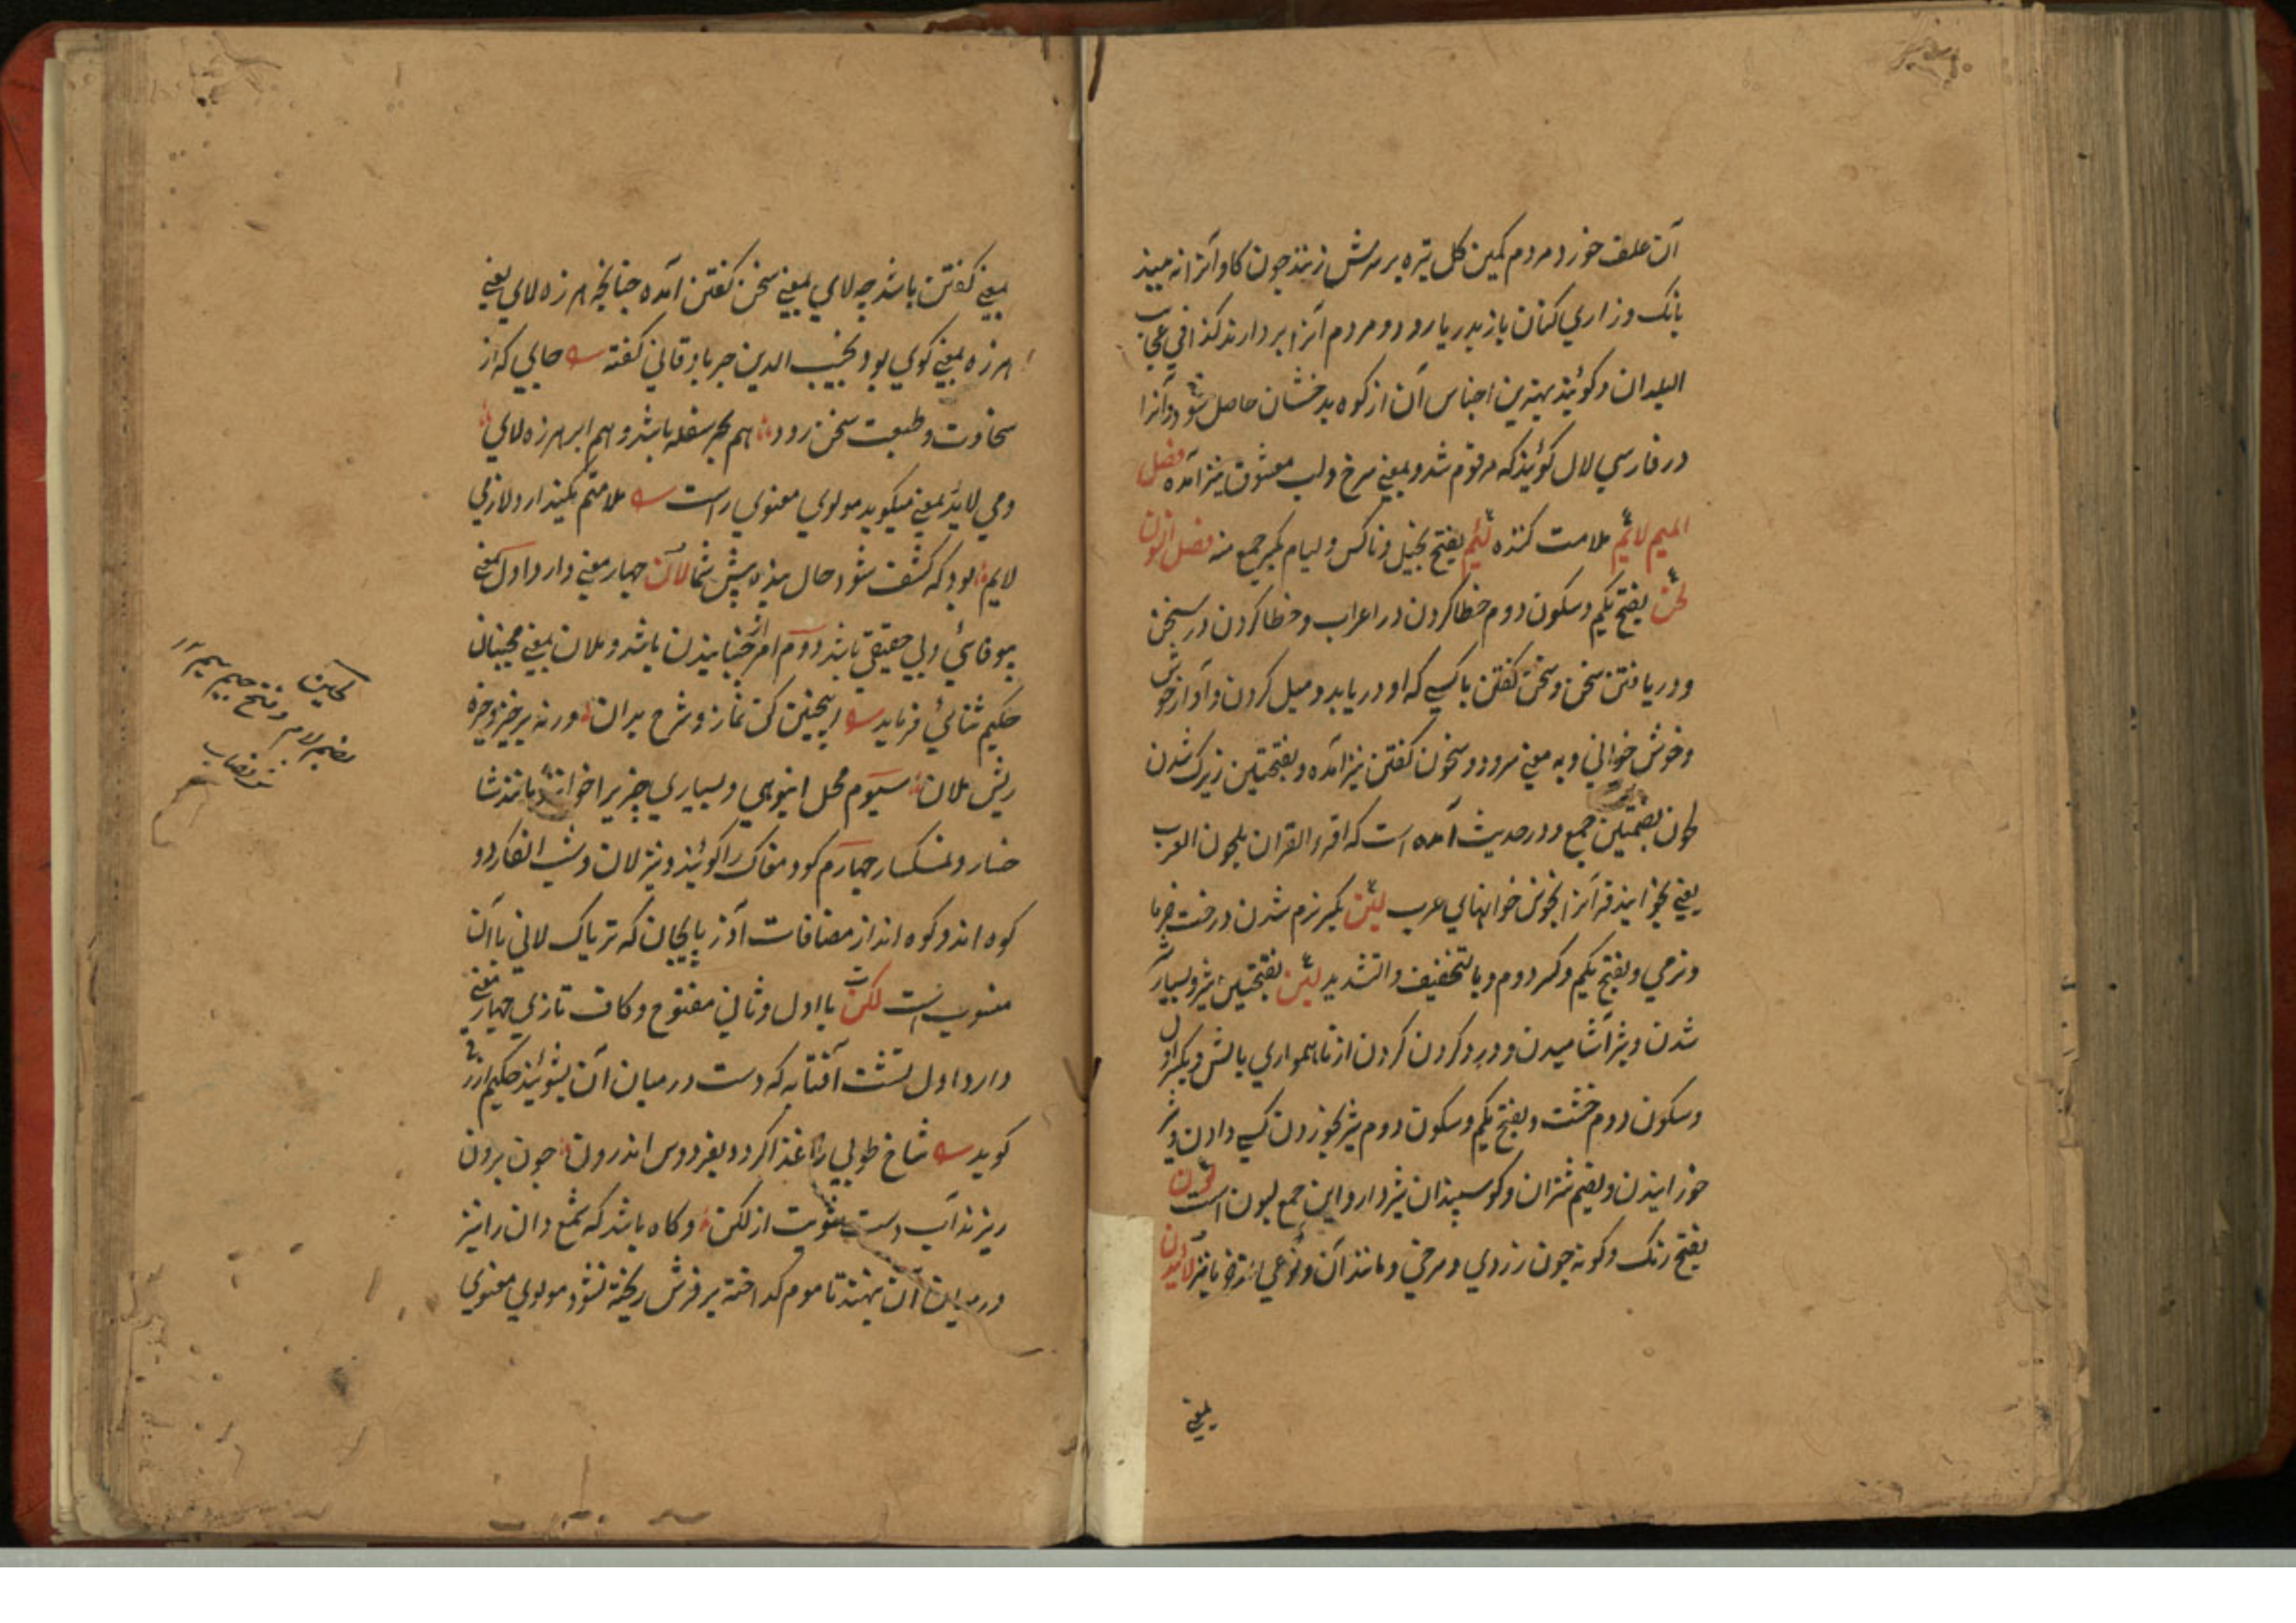 آن علف خورد مردم کمین کل تیره بر سرش زنند چون کاو آنرا نه بیند
بانک و زاري کنان باز بدریا رود و مردم آنرا بردارند کذا في عجایب
البلدان و کویند بهترین اجناس آن از کوه بدخشان حاصل شود و آنرا
در فارسي لال کویند که مرقوم شد و بمعني سرخ و لب معشوق نیز آمده فصل
المیم لائم ملامت کننده لئیم بفتح بخیل و ناکس و لیام بکسر جمع منه فصل النون
لحن بفتح یکم و سکون دوم خطا کردن در اعراب و خطا کردن در سخن
و دریافتن سخن و سخن کفتن با کسي که او دریابد و میل کردن و آواز خوش
و خوش خواني و به معني سرود و سخون کفتن نیز آمده و بفتحتین زیرک شدن
لحون بضمتین جمع و در حدیث آمده است که اقرء القران بلحون العرب
یعني بخوانید قرآنرا بخوش خوانیهاي عرب لین بکسر نرم شدن درخت خرما
و نرمي و بفتح یکم و کسر دوم و بالتخفیف و التشدید لبن بفتحتین شیر و بسیار شیر
شدن و شیر آشامیدن و درد کردن کردن از ناهمواري بالش و بکسر اول
و سکون دوم خشت و بفتح یکم و سکون دوم شیر بخوردن کسي دادن و شیر
خورانیدن و بضم شتران و کوسپندان شیردار و این جمع لبون است لون
بفتح رنک و کونه چون زردي و سرخي و مانند آن و نوعي از خرما نیز لائیدن
بمعني
بمعني کفتن باشد چه لاي بمعني سخن کفتن آمده چنانچه هرزه لاي یعني
هرزه بمعني کوي بود نجیب الدین جرباوقاني کفته جایي که از
سخاوت و طبعت سخن رود هم بحر سفله باشد و هم ابر هرزه لاي
و مي لاید بمعني میکوید مولوي معنوي راست ملامتم مکنید ار دلازمي
لایم بود که کشف شود حال بنده پیش شما لان چهار معني دارد اول بمعني
بیوفائي و بي حقیقي باشد دوم امر از جنبانیدن باشد و ملان بمعني مجنبان
حکیم سنائي فرماید اینچنین کن نماز و شرح بدان ورنه برخیز و خیره
ریش ملان سیوم محل انبوهي و بسیاري چیزیرا خوانند مانند شا
خسار و نمکسار چهارم کو و مغاک را کویند و نیز لان و شب انفکار دو
کوه اند و کوه اند از مضافات آذربایجان که تریاک لاني باآن
منسوب است لکن با اول و ثاني مفتوح و کاف تازي چهار معني
دارد اول تشت آفتابه که دست در میان آن بشویند حکیم ازرقي
کوید شاخ طوبي را غذا کردد بفردوس اندرون چون برون
ریزند آب دست شویت از لکن و کاه باشد که شمع دان را نیز
در میان آن نهند تا موم کداخته بر فرش ریخته نشود مولوي معنوي
لجین
بضم لام و فتح جیم سیم
نصاب